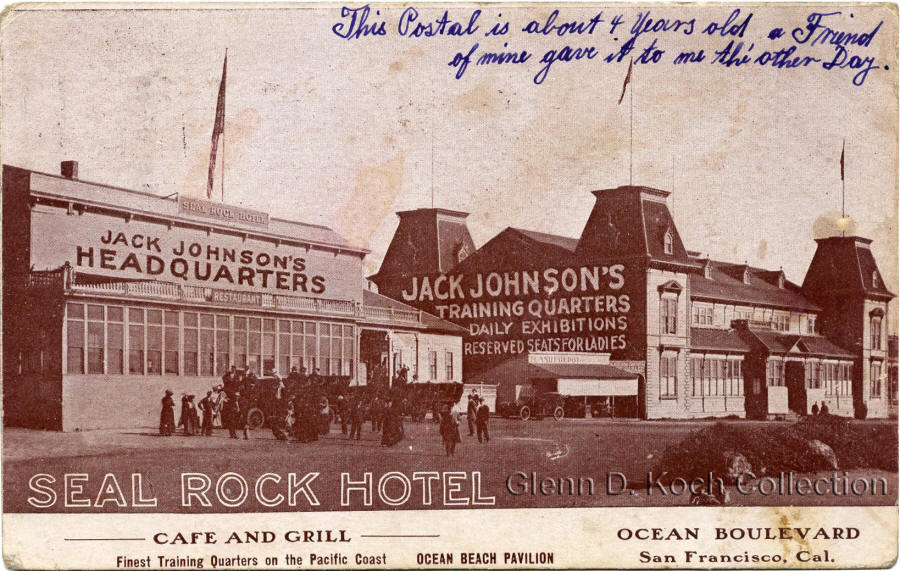 This Postal is about 4 Years old a Friend
of mine gave it to me the other Day.
SEAL ROCK HOTEL
JACK JOHNSON'S
HEADQUARTERS
RESTAURANT
JACK JOHNSON'S
TRAINING QUARTERS
DAILY EXHIBITIONS
RESERVED SEATS FOR LADIES
SEAL ROCK HOTEL
Glenn D. Koch Collection
CAFE AND GRILL
Finest Training Quarters on the Pacific Coast
OCEAN BEACH PAVILION
OCEAN BOULEVARD
San Francisco, Cal.